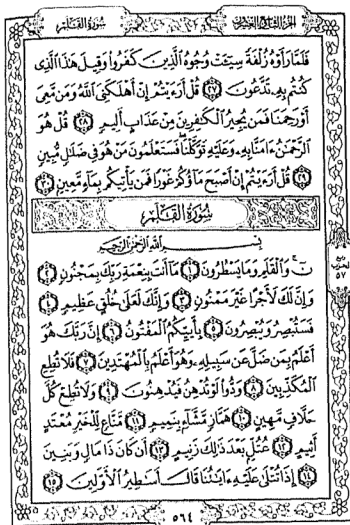 سُورَةُ القَلَمِ
الجزء التاسع والعشرون
فَلَمَّا رَأَوْهُ زُلْفَةً سِيٓـَٔتْ وُجُوهُ ٱلَّذِينَ كَفَرُوا۟ وَقِيلَ هَٰذَا ٱلَّذِى
كُنتُم بِهِۦ تَدَّعُونَ ٢٧ قُلْ أَرَءَيْتُمْ إِنْ أَهْلَكَنِىَ ٱللَّهُ وَمَن مَّعِىَ
أَوْ رَحِمَنَا فَمَن يُجِيرُ ٱلْكَٰفِرِينَ مِنْ عَذَابٍ أَلِيمٍ ٢٨ قُلْ هُوَ
ٱلرَّحْمَٰنُ ءَامَنَّا بِهِۦ وَعَلَيْهِ تَوَكَّلْنَا فَسَتَعْلَمُونَ مَنْ هُوَ فِى ضَلَٰلٍ مُّبِينٍ
٢٩ قُلْ أَرَءَيْتُمْ إِنْ أَصْبَحَ مَآؤُكُمْ غَوْرًا فَمَن يَأْتِيكُم بِمَآءٍ مَّعِينٍۭ ٣٠
سُورَةُ القَلَمِ
بِسْمِ ٱللَّهِ ٱلرَّحْمَٰنِ ٱلرَّحِيمِ
نٓ وَٱلْقَلَمِ وَمَا يَسْطُرُونَ ١ مَآ أَنتَ بِنِعْمَةِ رَبِّكَ بِمَجْنُونٍ ٢
وَإِنَّ لَكَ لَأَجْرًا غَيْرَ مَمْنُونٍ ٣ وَإِنَّكَ لَعَلَىٰ خُلُقٍ عَظِيمٍ ٤
فَسَتُبْصِرُ وَيُبْصِرُونَ ٥ بِأَييِّكُمُ ٱلْمَفْتُونُ ٦ إِنَّ رَبَّكَ هُوَ
أَعْلَمُ بِمَن ضَلَّ عَن سَبِيلِهِۦ وَهُوَ أَعْلَمُ بِٱلْمُهْتَدِينَ ٧ فَلَا تُطِعِ
ٱلْمُكَذِّبِينَ ٨ وَدُّوا۟ لَوْ تُدْهِنُ فَيُدْهِنُونَ ٩ وَلَا تُطِعْ كُلَّ
حَلَّافٍ مَّهِينٍ ١٠ هَمَّازٍ مَّشَّآءٍۭ بِنَمِيمٍ ١١ مَّنَّاعٍ لِّلْخَيْرِ مُعْتَدٍ
أَثِيمٍ ١٢ عُتُلٍّۭ بَعْدَ ذَٰلِكَ زَنِيمٍ ١٣ أَن كَانَ ذَا مَالٍ وَبَنِينَ
١٤ إِذَا تُتْلَىٰ عَلَيْهِ ءَايَٰتُنَا قَالَ أَسَٰطِيرُ ٱلْأَوَّلِينَ ١٥
ربع
الحزب
٥٧
٥٦٤